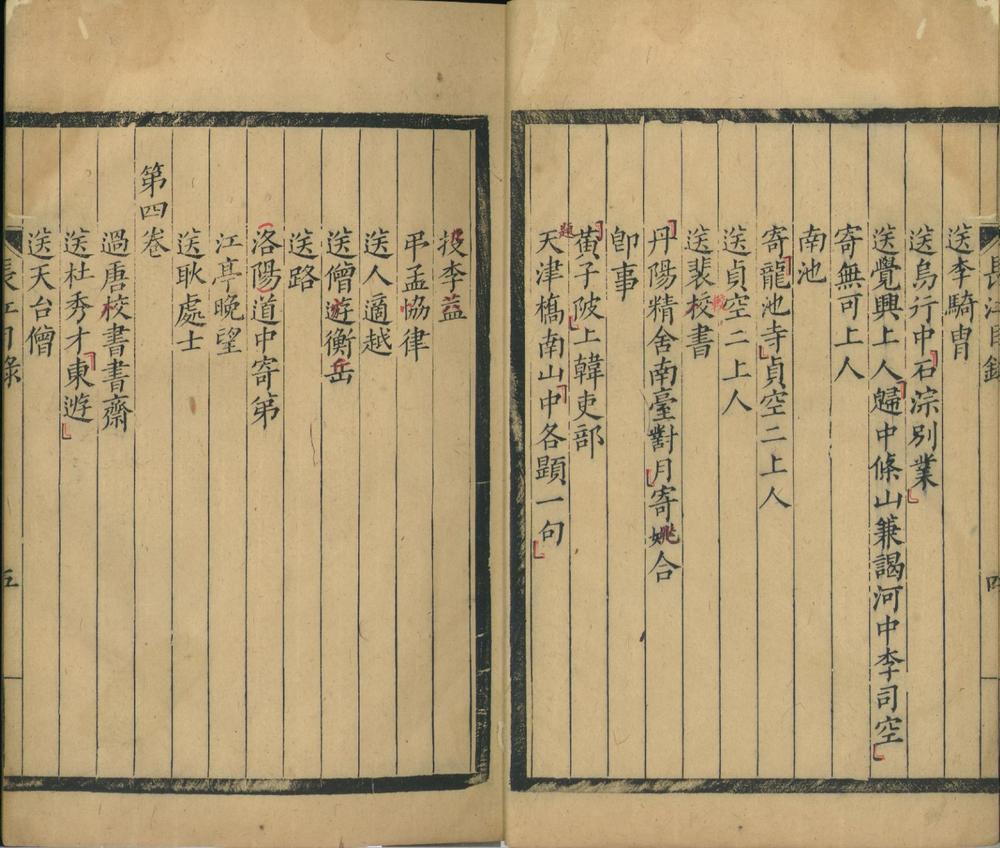 長江目錄
四
送李騎曹
送烏行中石淙別業
送覺興上人歸中條山兼謁河中李司空
寄無可上人
南池
寄龍池寺貞空二上人
送貞空二上人
送裴校書
丹陽精舍南臺對月寄姚合
卽事
黃子陂上韓吏部
題
天津橋南山中各題一句
投李益
弔孟協律
送人適越
送僧遊衡岳
送路
洛陽道中寄弟
江亭晚望
送耿處士
第四卷
過唐校書書齋
送杜秀才東遊
送天台僧
長江目錄
五